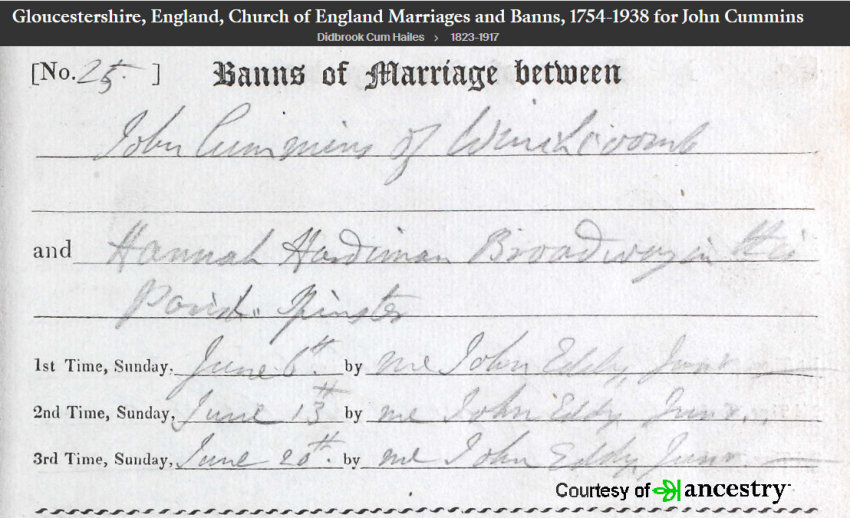 Gloucestershire, England, Church of England Marriages and Banns, 1754-1938 for John Cummins
Didbrook Cum Hailes > 1823-1917
[No. 25. ] Banns of Marriage between
John Cummins of Winchcomb
and Hannah Hardiman Broadway in this
Parish. Spinster
1st Time, Sunday, June 6th. by me John Eddy, Junr.
2nd Time, Sunday, June 13th by me John Eddy Junr.
3rd Time, Sunday, June 20th. by me John Eddy, Junr.
Courtesy of ancestry